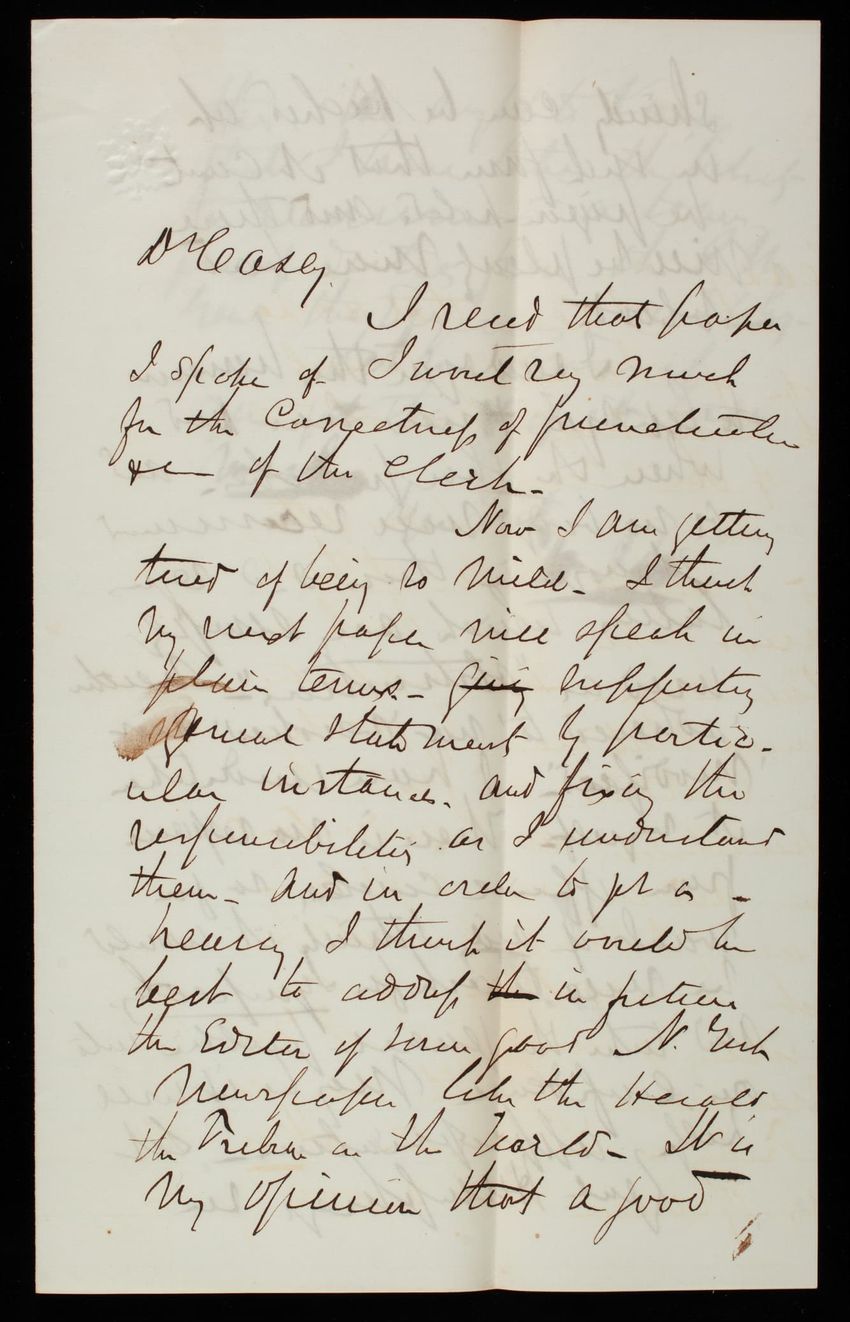 Dr Casey.
I send that paper
I spoke of I wont say much
for the Correctness of punctuation
&c of the Clerk -
Now I am getting
tired of being so mild - I think
my next paper will speak in
plain terms - giving supporting
general statement by partic-
ular instances. and fixing the
responsibilities as I understand
them - and in order to get a -
hearing I think it would be
best to address the in future
the Editor of some good N. York
Newspaper like the Herald
the Tribune or the World - It is
my opinion that a good